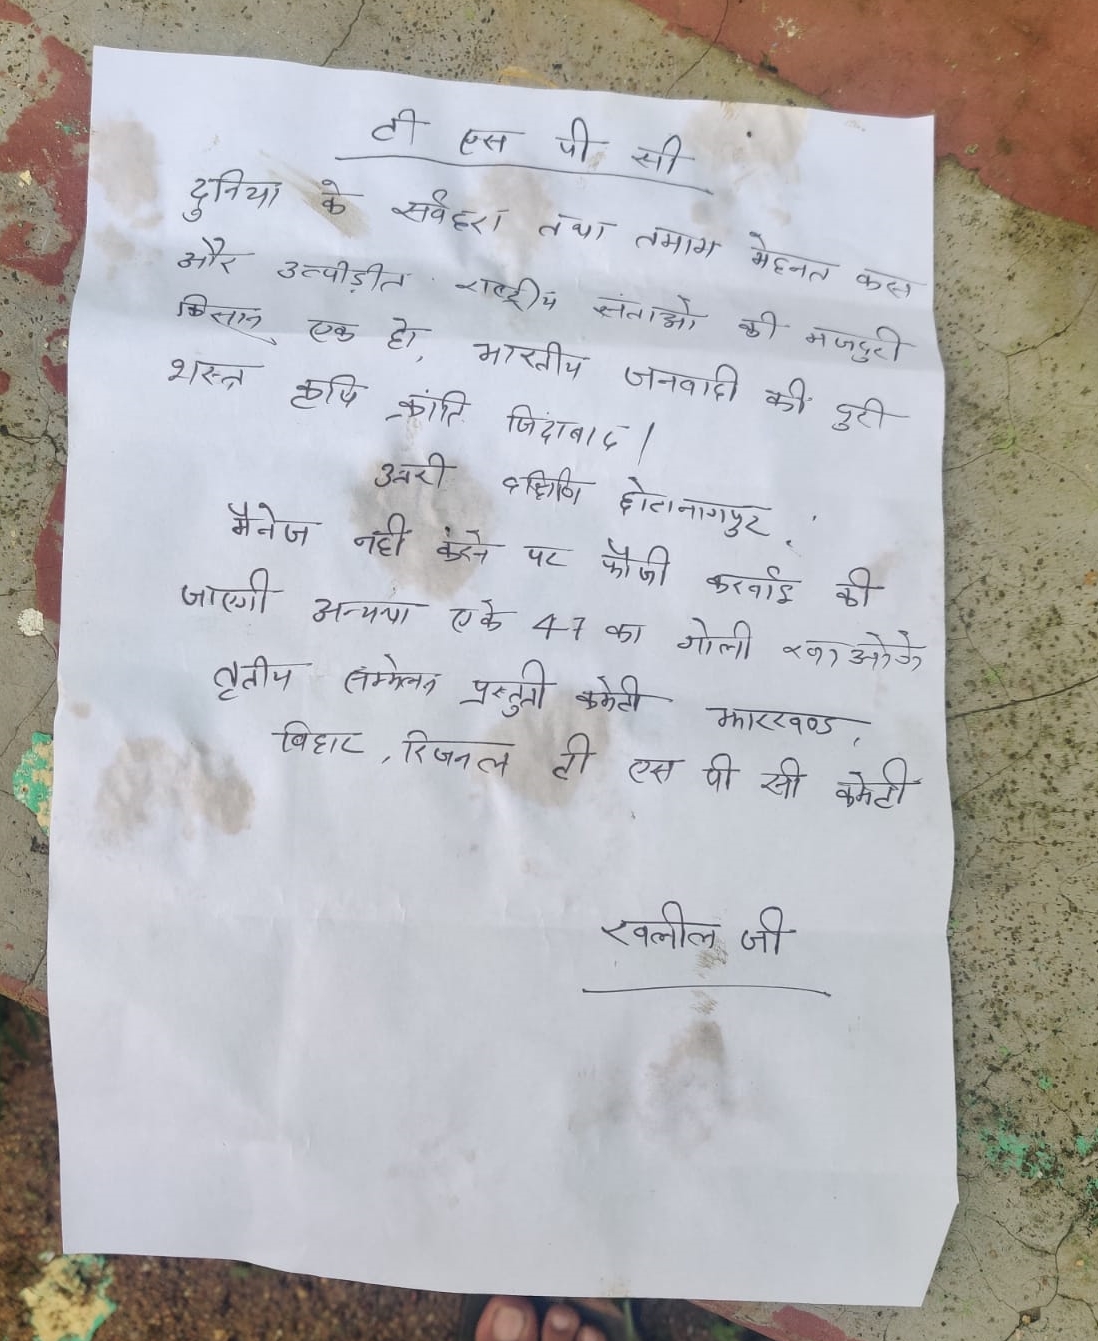 टी एस पी सी
दुनिया के सर्वहरा तथा तमाम मेहनत कस
और उत्पीड़ीत राष्ट्रीय संताओ की मजदुरी
किसान एक हो, भारतीय जनवादी की दुरी
शस्त्र कृषि क्रांति जिंदाबाद।
उत्तरी दक्षिणि छोटानागपुर,
मैनेज नही करने पर फौजी करवाई की
जाएगी अन्यथा एके 47 का गोली खाओगे
तृतीय सम्मेलन प्रस्तुती कमेटी झारखण्ड,
बिहार, रिजनल टी एस पी सी कमेटी
खलील जी